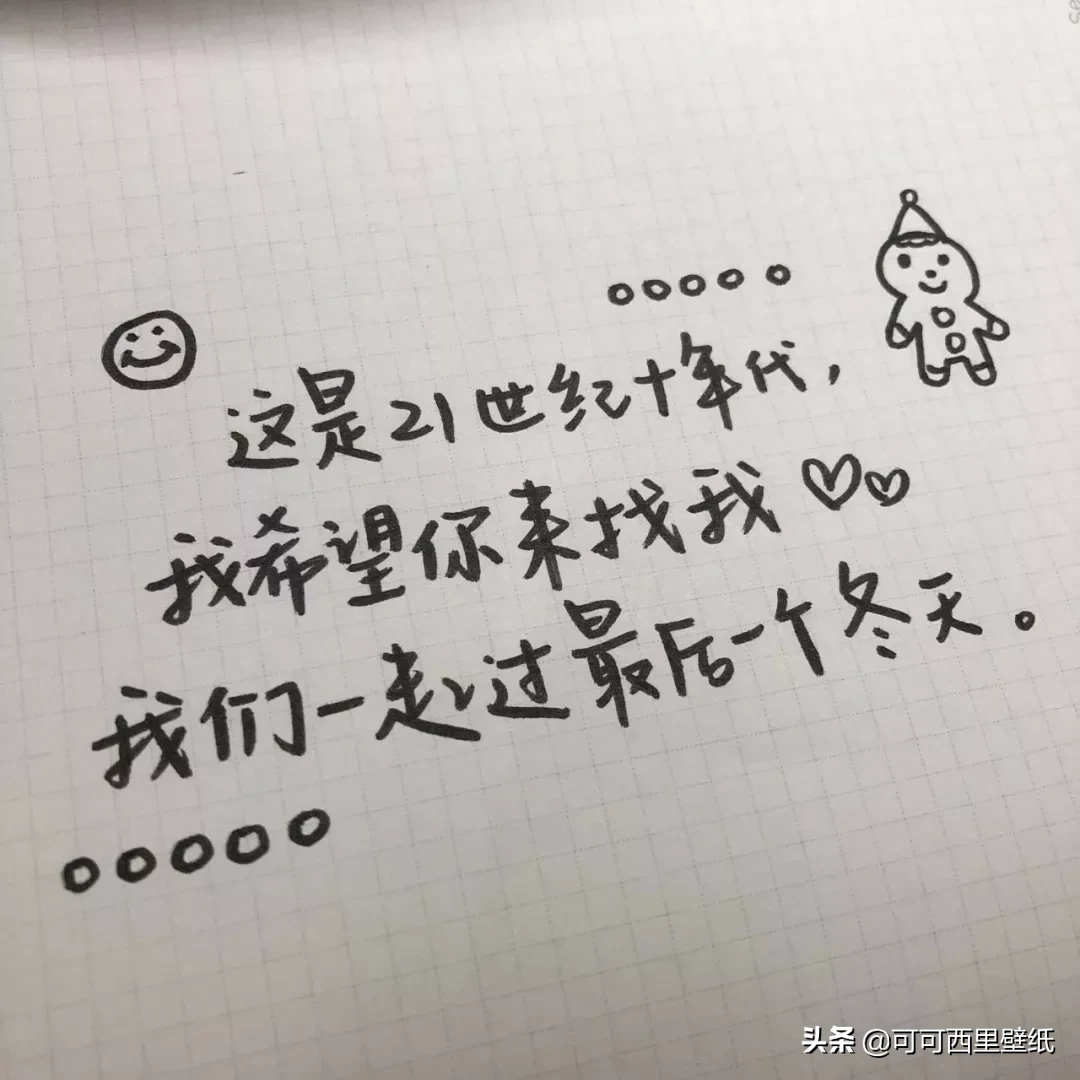 这是21世纪十年代，
我希望你来找我
我们一起过最后一个冬天。
头条 @可可西里壁纸